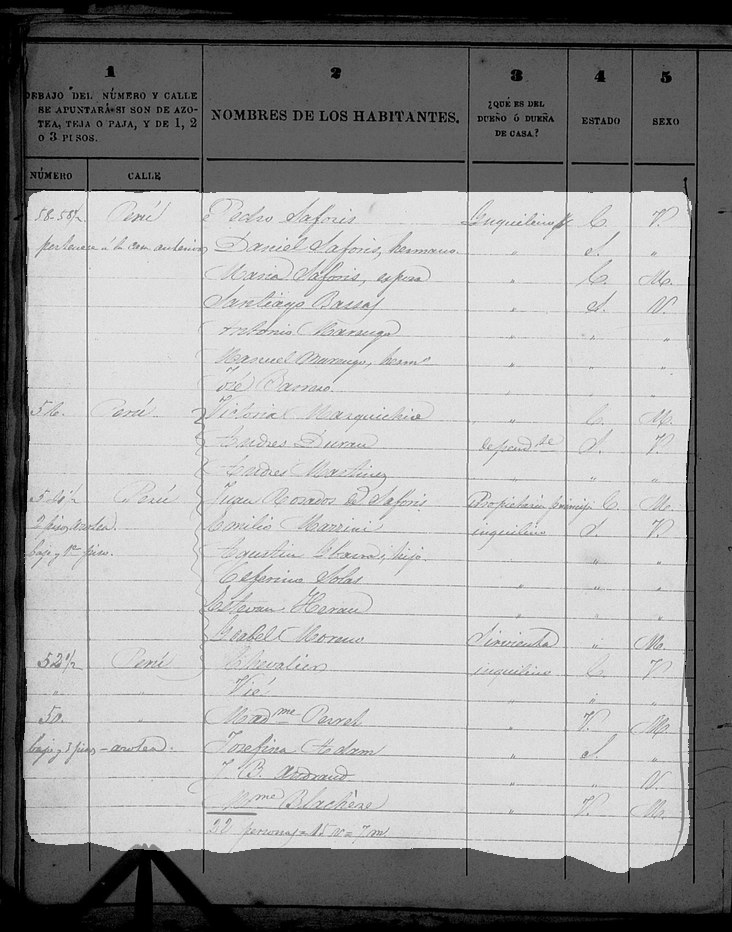 1 2 3 4 5
DEBAJO DEL NÚMERO Y CALLE
SE APUNTARÁ SI SON DE AZO-
TEA, TEJA O PAJA, Y DE 1, 2
O 3 PISOS.
NOMBRES DE LOS HABITANTES.
¿QUÉ ES DEL
DUEÑO Ó DUEÑA
DE CASA?
ESTADO
SEXO
NÚMERO CALLE
58-58½ Perú Pedro Saforis Inquilino C. V.
pertenece á la casa anterior Daniel Saforis, hermano " S. "
Maria Saforis, esposa " C. M.
Santiago Bassas " S. V.
Antonio Marengo " " "
Manuel Marengo, herm° " " "
José " " "
56. Perú Victoria " C. M.
Andres Duran depend.te S. V.
Andres Martinez " " "
54½ Perú Juan Rosados de Saforis Propietaria C. M.
2 piso, azotea. Emilio Mazzini inquilino S. V.
bajo y 1er piso. Agustin hijo " "
Ceferino Solas " " "
Estevan Heran " " "
Isabel Moreno Sirvienta " M.
52½ Perú Chevalier inquilino C. V.
" " Vié " " "
50. " Madme Perret " V. M.
bajo y 3 pisos - azotea. Josefina Adam " S. "
J. B. Andraud " " V.
Mme Blachère " V. M.
22 personas = 15 v = 7 m